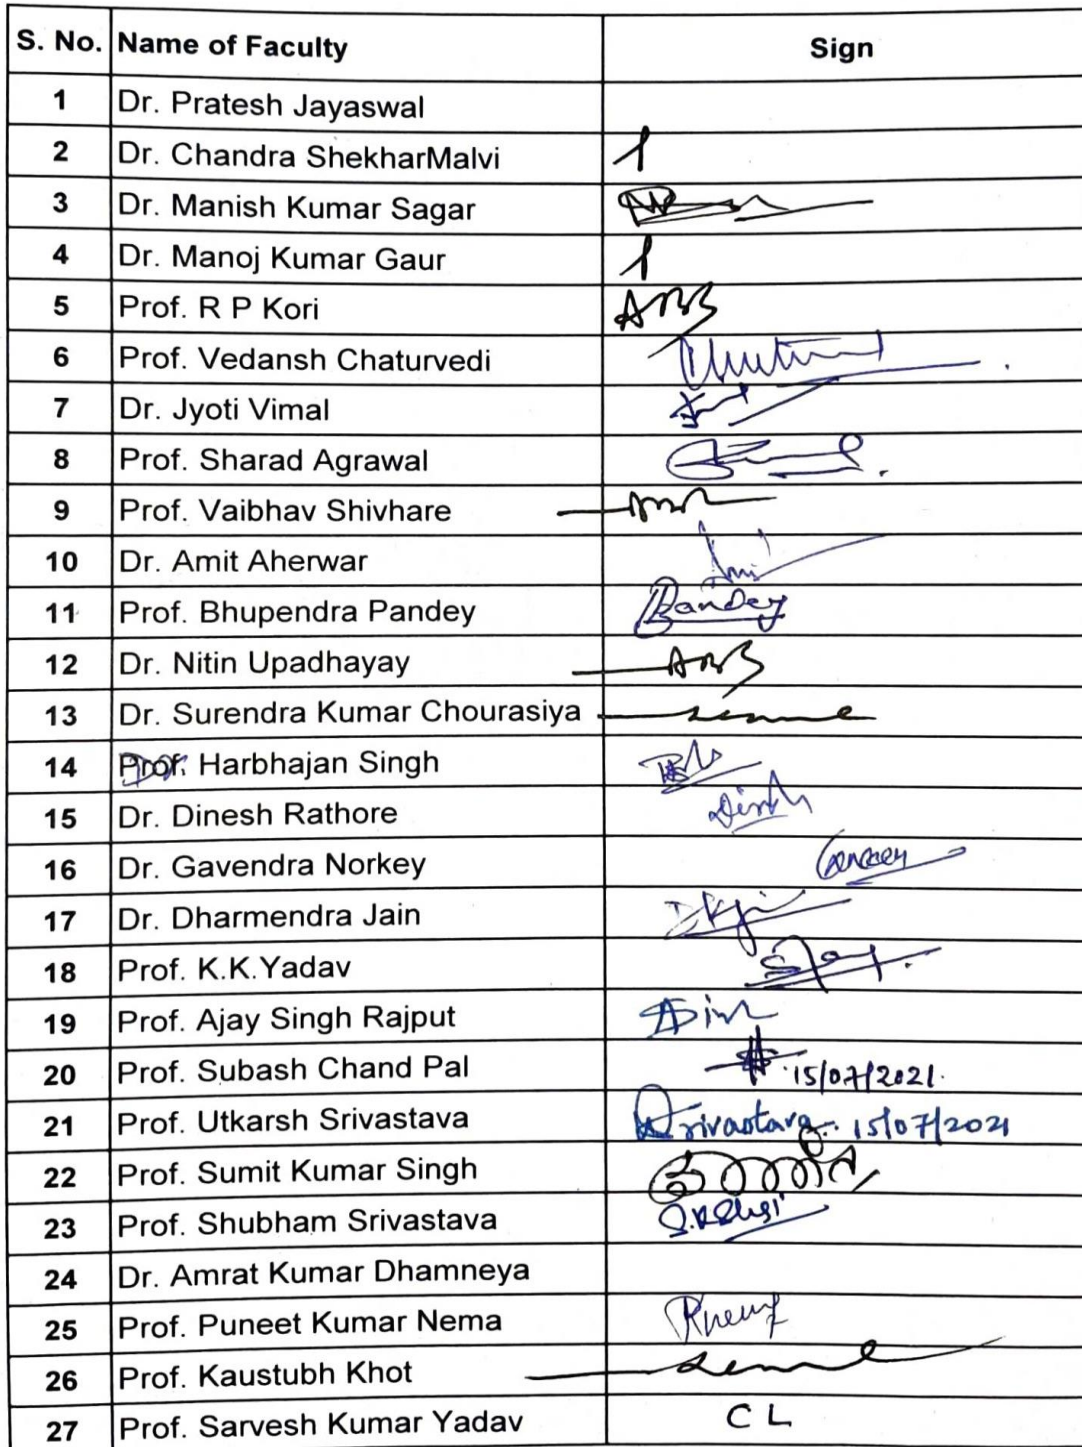 S. No. Name of Faculty Sign
1 Dr. Pratesh Jayaswal
2 Dr. Chandra ShekharMalvi
3 Dr. Manish Kumar Sagar
4 Dr. Manoj Kumar Gaur
5 Prof. R P Kori
6 Prof. Vedansh Chaturvedi
7 Dr. Jyoti Vimal
8 Prof. Sharad Agrawal
9 Prof. Vaibhav Shivhare
10 Dr. Amit Aherwar
11 Prof. Bhupendra Pandey Pandey
12 Dr. Nitin Upadhayay
13 Dr. Surendra Kumar Chourasiya
14 Prof. Harbhajan Singh
15 Dr. Dinesh Rathore
16 Dr. Gavendra Norkey
17 Dr. Dharmendra Jain
18 Prof. K.K.Yadav
19 Prof. Ajay Singh Rajput
20 Prof. Subash Chand Pal 15/07/2021
21 Prof. Utkarsh Srivastava Srivastava 15/07/2021
22 Prof. Sumit Kumar Singh
23 Prof. Shubham Srivastava
24 Dr. Amrat Kumar Dhamneya
25 Prof. Puneet Kumar Nema
26 Prof. Kaustubh Khot
27 Prof. Sarvesh Kumar Yadav CL